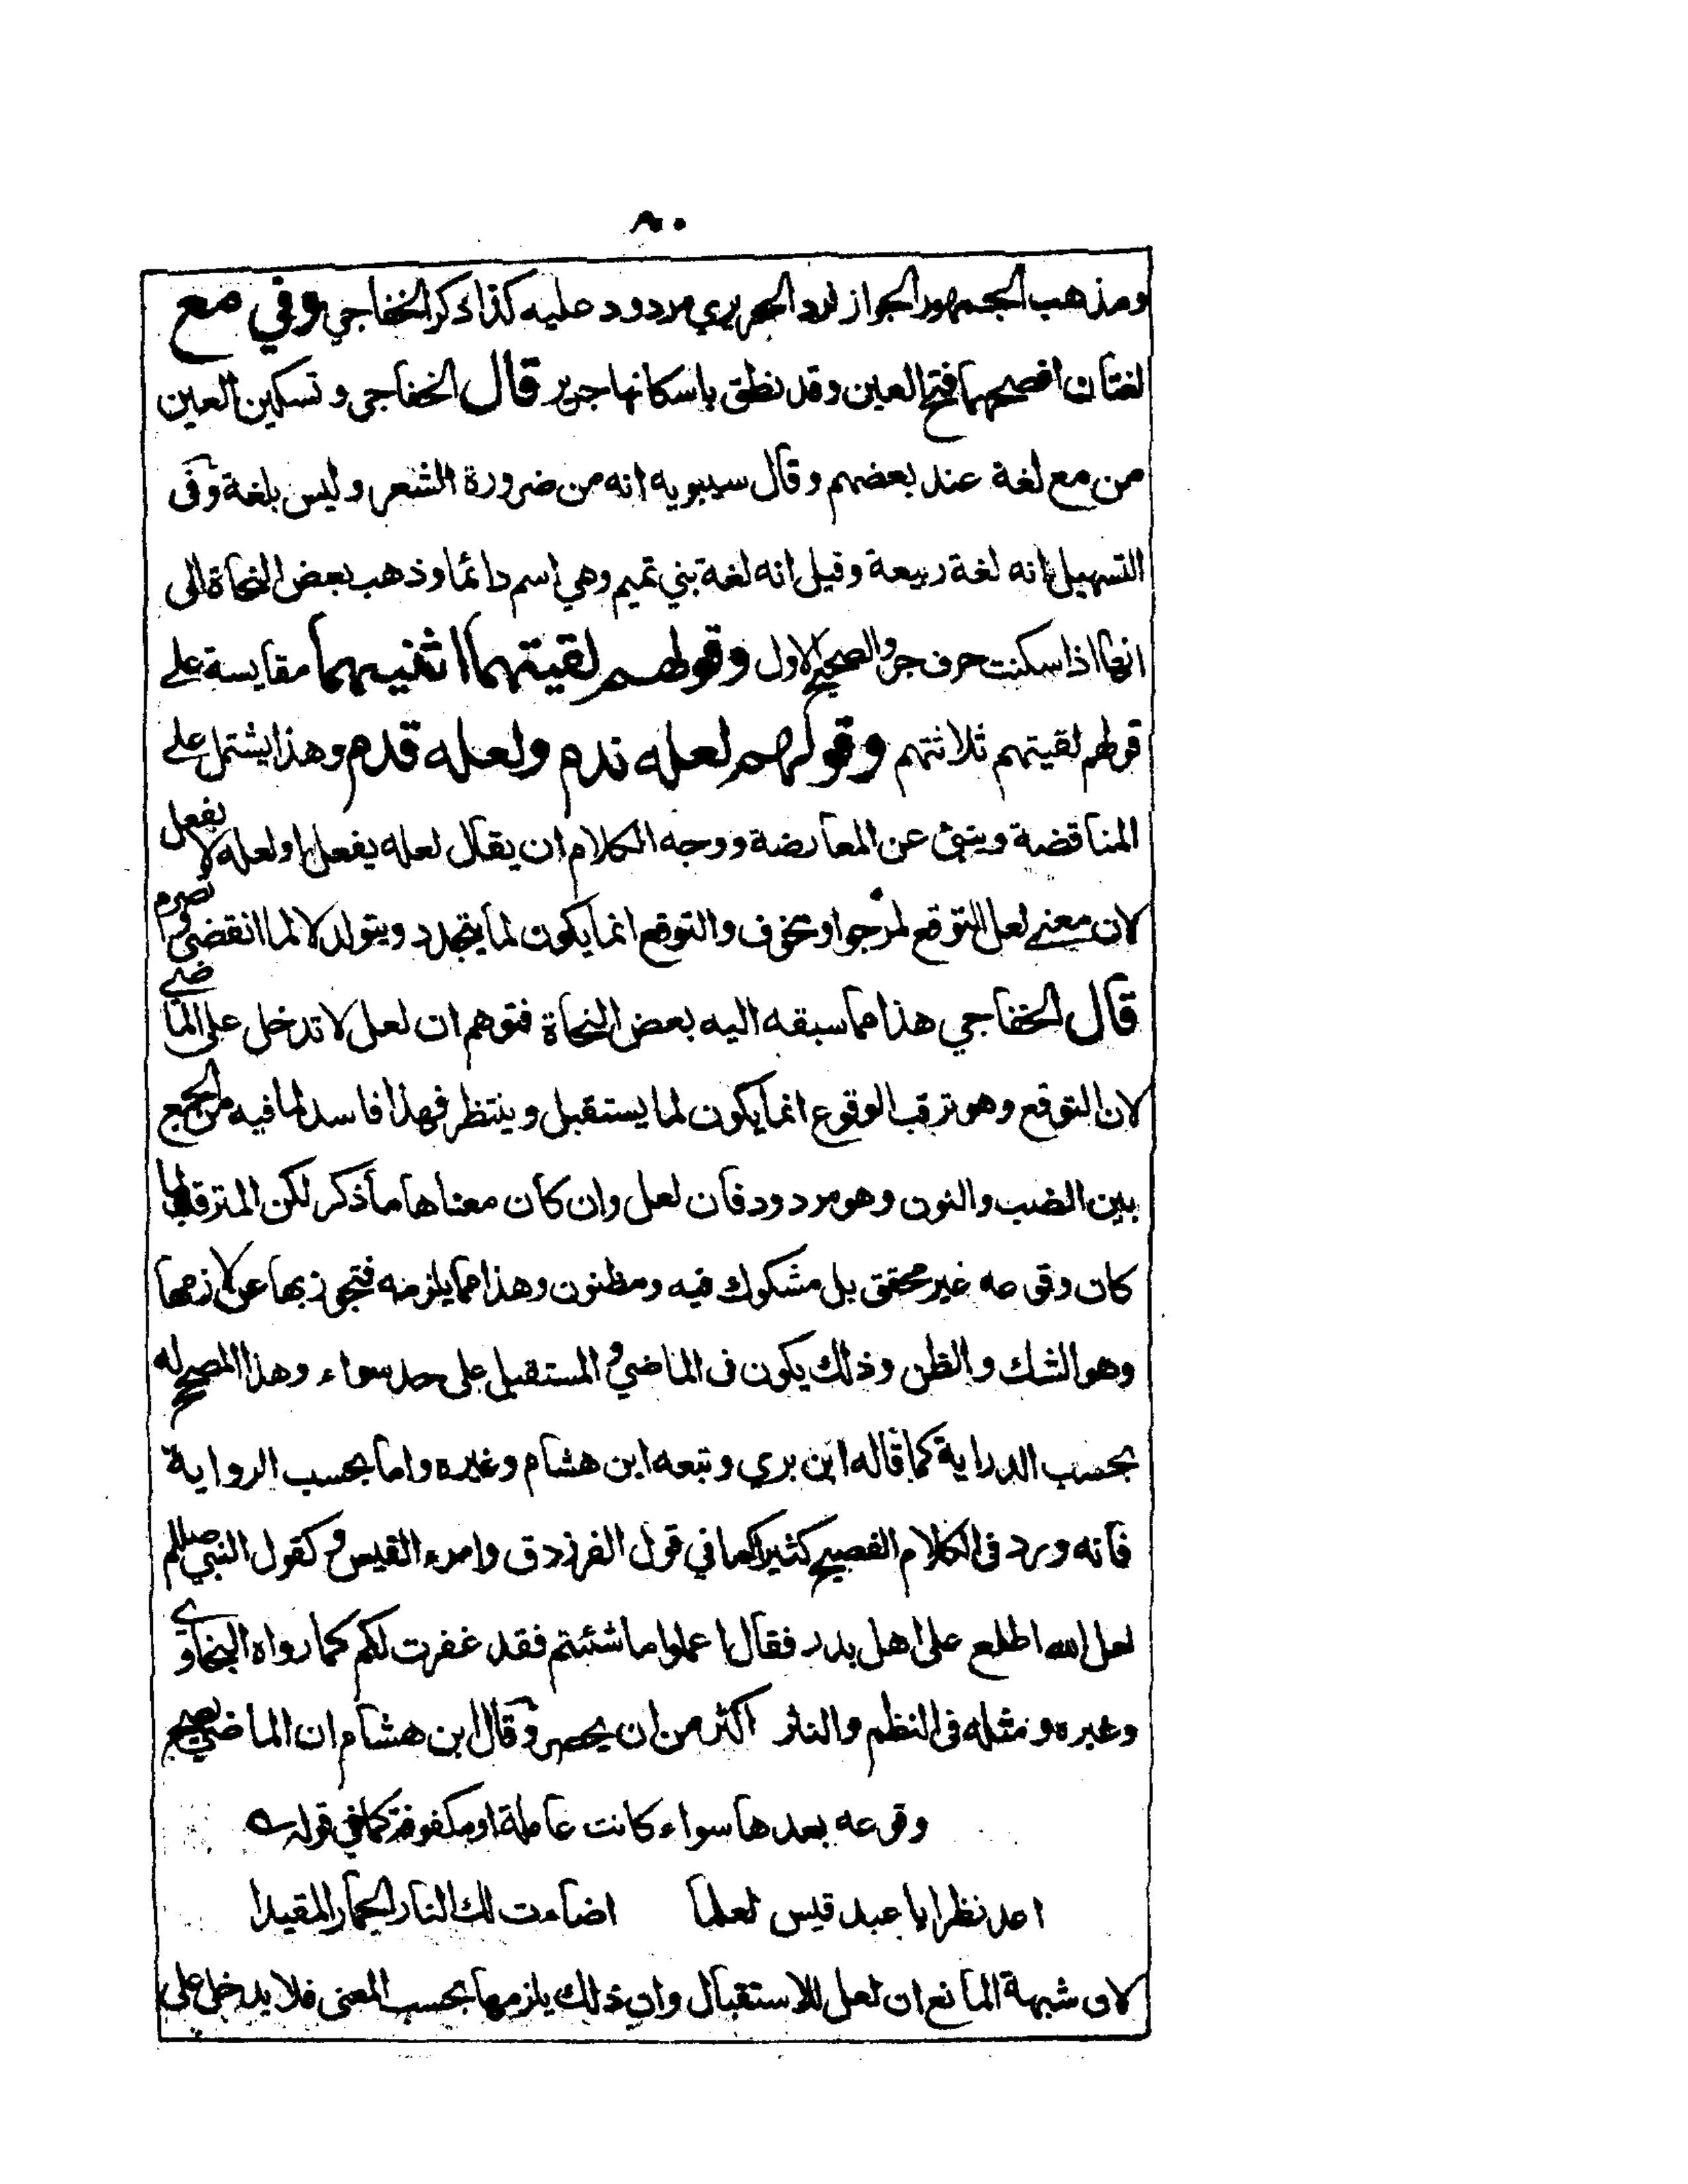 ٨٠
ومذهب الجمهور الجواز فرد الحريري مردود عليه كذا ذكر الخفاجي وفي مع
لغتان افصحهما فتح العين وقد نطق باسكانها جرير قال الخفاجي وتسكين العين
من مع لغة عند بعضهم وقال سيبويه انه من ضرورة الشعر وليس بلغة وفى
التسهيل انه لغة ربيعة وقيل انه لغة بني تميم وهي اسم دائما وذهب بعض النحاة الى
انها اذا سكنت حرف جر والصحيح الاول وقولهم لقيتهما اثنيهما مقايسة على
قولهم لقيتهم ثلاثتهم وقولهم لعله ندم ولعله قدم وهذا يشتمل على
المناقضة وينبئ عن المعارضة ووجه الكلام ان يقال لعله يفعل او لعله لا يفعل
لان معنى لعل التوقع لمرجو او مخوف والتوقع انما يكون لما يتجدد ويتولد لا لما انقضى وتصرم
قال الخفاجي هذا مما سبقه اليه بعض النحاة فتوهم ان لعل لا تدخل على الماضى
لان التوقع وهو ترقب الوقوع انما يكون لما يستقبل وينتظر فهذا فاسد لما فيه من الجمع
بين الضب والنون وهو مردود فان لعل وان كان معناها ما ذكر لكن المترقب لما
كان وقوعه غير محقق بل مشكوك فيه ومظنون وهذا مما يلزمه فتجوز بها عن لازمها
وهو الشك والظن وذلك يكون فى الماضي والمستقبل على حد سواء وهذا المصحح له
بحسب الدراية كما قاله ابن بري وتبعه ابن هشام وغيره واما بحسب الرواية
فانه ورد فى الكلام الفصيح كثيرا كما في قول الفرزدق وامرء القيس وكقول النبي صللم
لعل الله اطلع على اهل بدر فقال اعملوا ما شئتم فقد غفرت لكم كما رواه البخاري
وغيره ومثله فى النظم والنثر اكثر من ان يحصر وقال ابن هشام ان الماضي يصح
وقوعه بعدها سواء كانت عاملة او مكفوفة كما في قوله
اعد نظرا يا عبد قيس لعلما اضاءت لك النار الحمار المقيدا
لان شبهة المانع ان لعل للاستقبال وان ذلك يلزمها بحسب المعنى فلا يدخل على